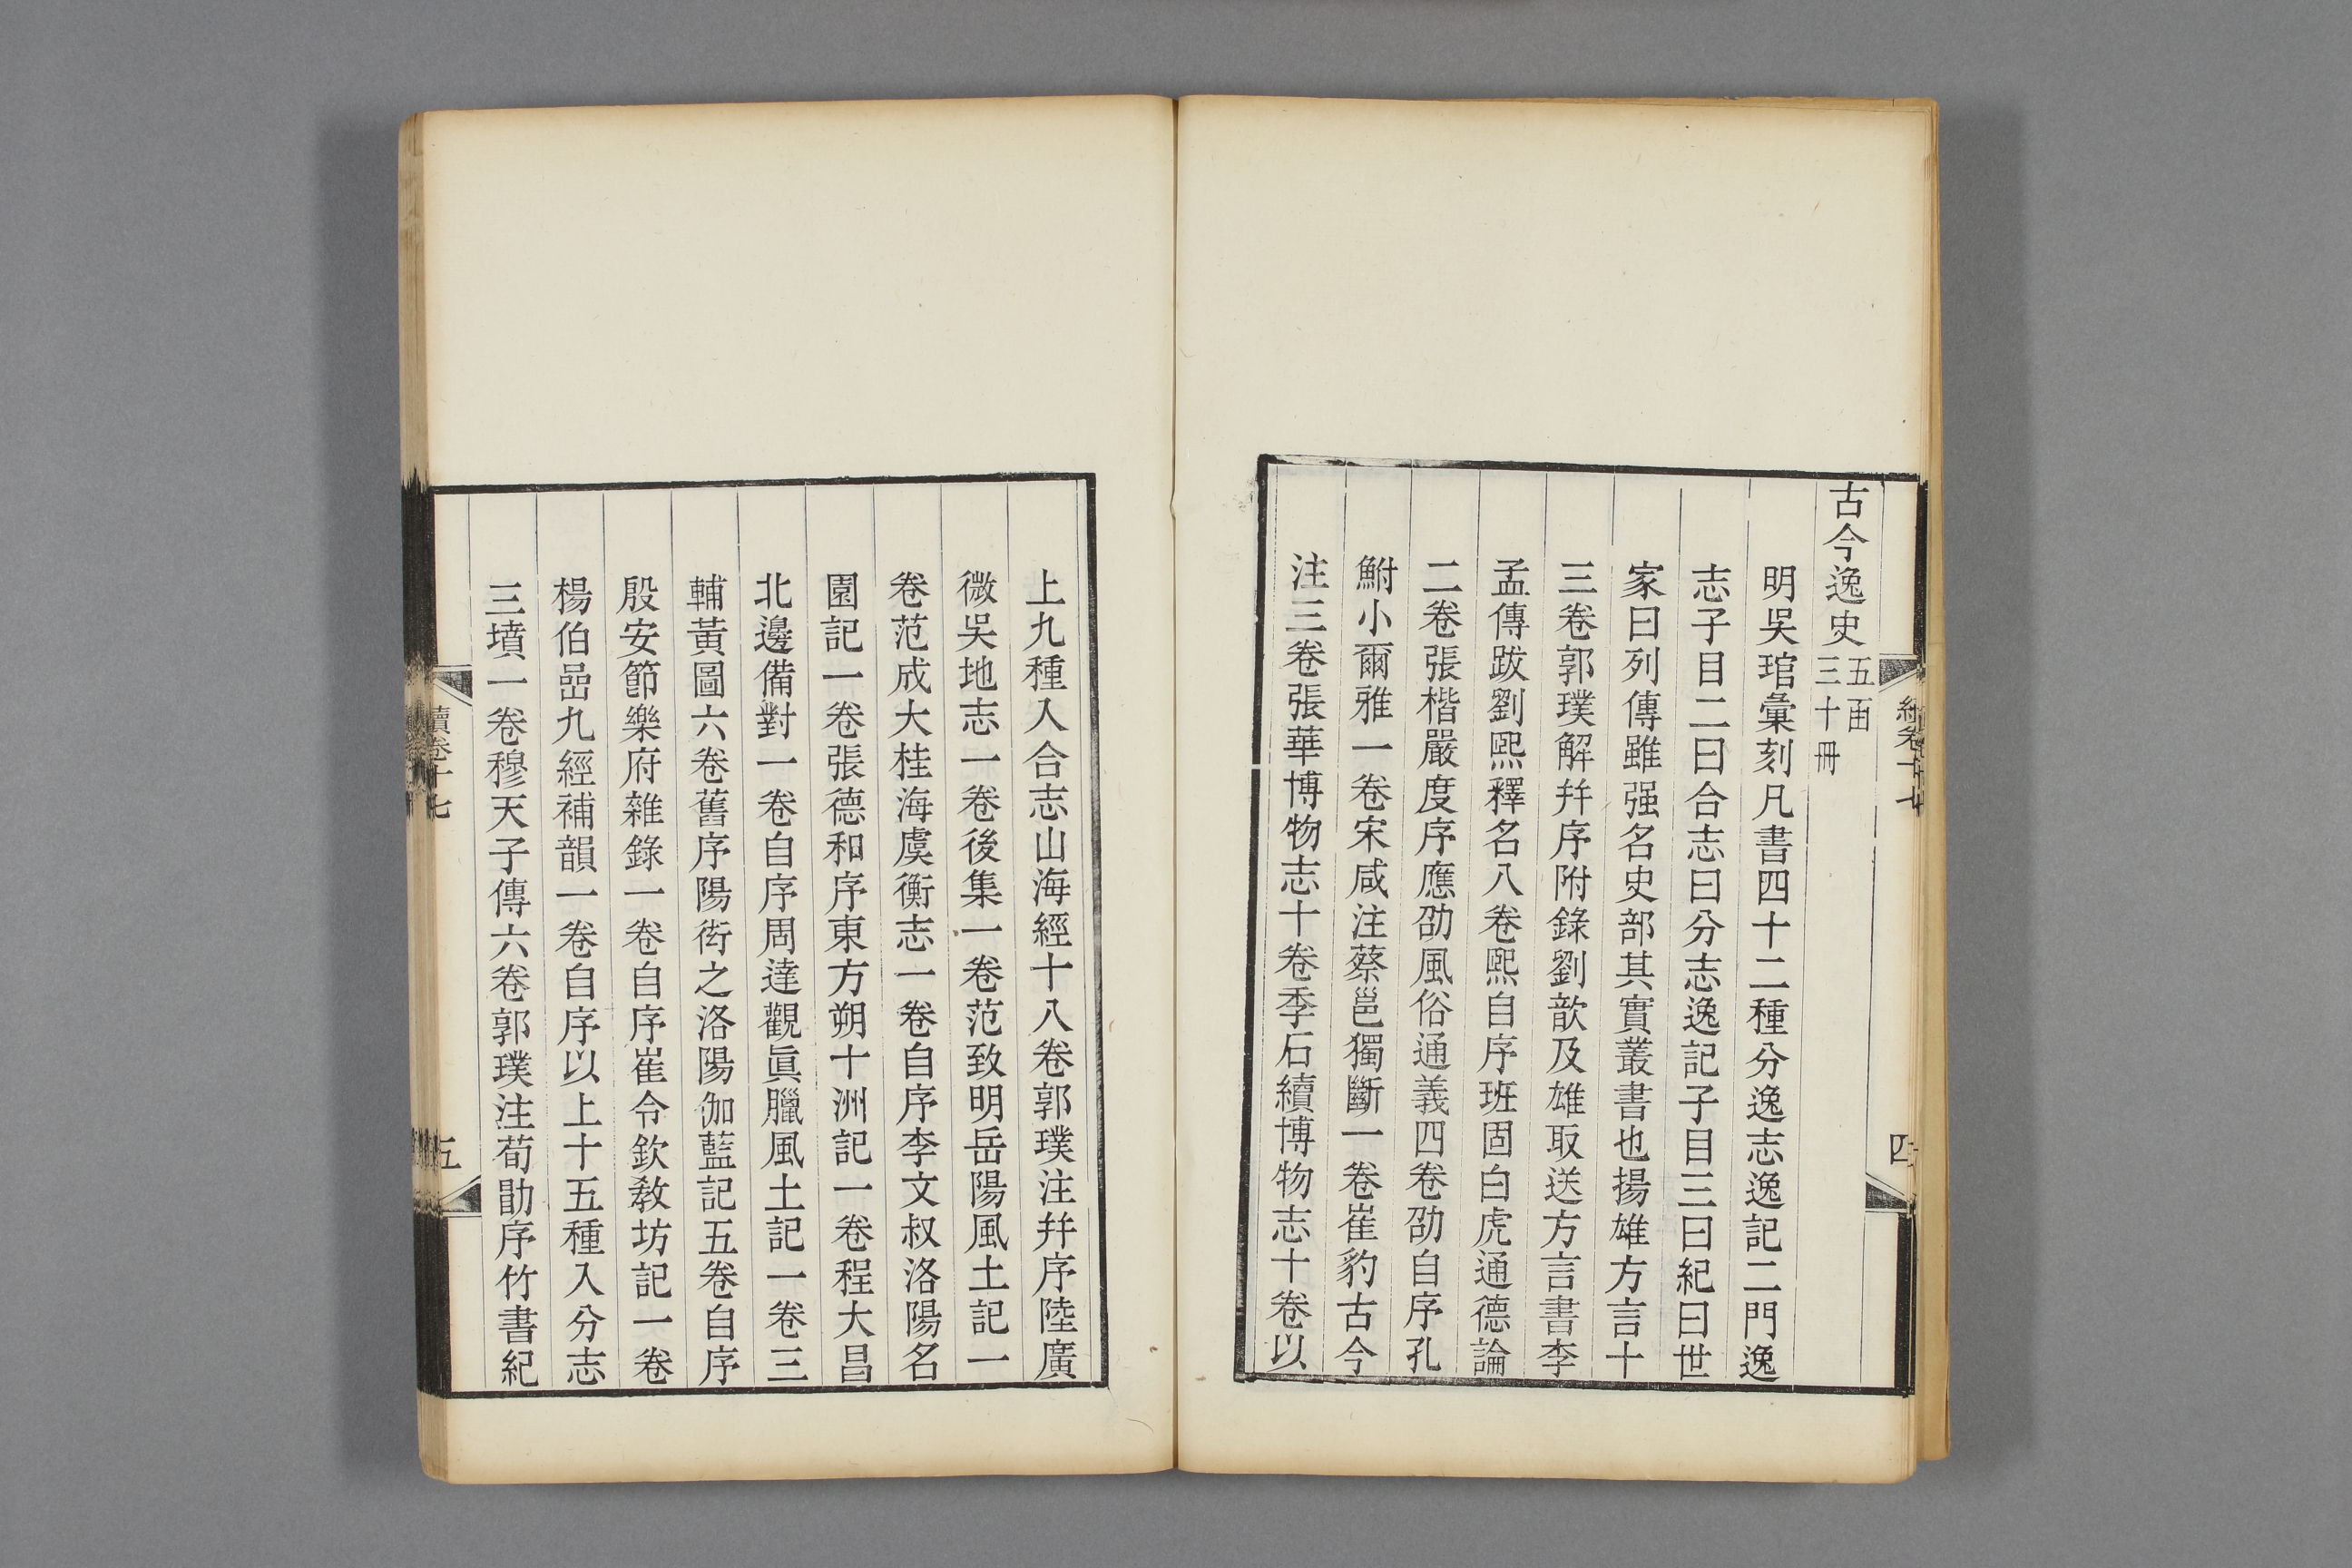 古今逸史五函三十冊
明吳琯彙刻凡書四十二種分逸志逸記二門逸
志子目二曰合志曰分志逸記子目三曰紀曰世
家曰列傳雖强名史部其實叢書也揚雄方言十
三卷郭璞解幷序附錄劉歆及雄取送方言書李
孟傳跋劉熙釋名八卷熙自序班固白虎通德論
二卷張楷嚴度序應劭風俗通義四卷劭自序孔
鮒小爾雅一卷宋咸注蔡邕獨斷一卷崔豹古今
注三卷張華博物志十卷季石續博物志十卷以
四
上九種入合志山海經十八卷郭璞注幷序陸廣
微吳地志一卷後集一卷范致明岳陽風土記一
卷范成大桂海虞衡志一卷自序李文叔洛陽名
園記一卷張德和序東方朔十洲記一卷程大昌
北邊備對一卷自序周達觀眞臘風土記一卷三
輔黃圖六卷舊序陽衒之洛陽伽藍記五卷自序
殷安節樂府雜錄一卷自序崔令欽敎坊記一卷
楊伯嵒九經補韻一卷自序以上十五種入分志
三墳一卷穆天子傳六卷郭璞注荀勖序竹書紀
續卷十七
五